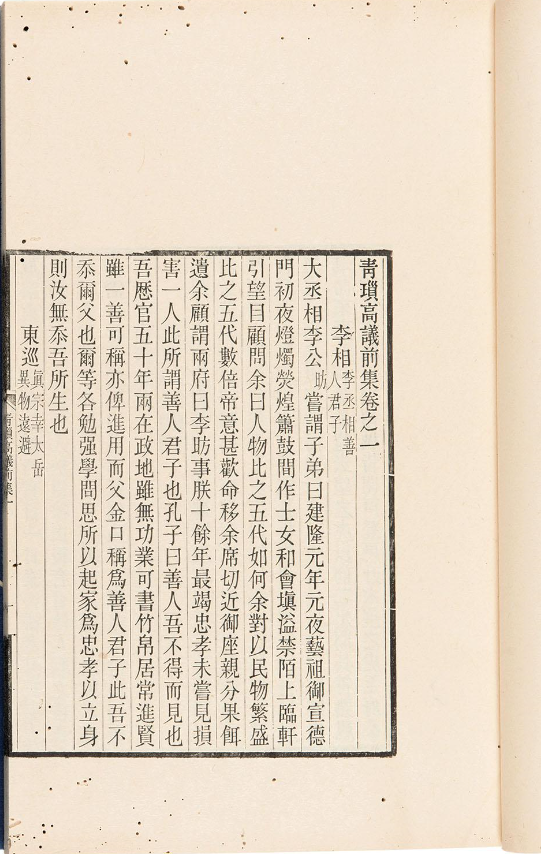 青瑣高議前集卷之一
李相李丞相善人君子
大丞相李公昉嘗謂子弟曰建隆元年元夜藝祖御宣德
門初夜燈燭熒煌簫鼓間作士女和會塡溢禁陌上臨軒
引望目顧問余曰人物比之五代如何余對以民物繁盛
比之五代數倍帝意甚歡命移余席切近御座親分果餌
遺余顧謂兩府曰李昉事朕十餘年最竭忠孝未嘗見損
害一人此所謂善人君子也孔子曰善人吾不得而見也
吾歷官五十年兩在政地雖無功業可書竹帛居常進賢
雖一善可稱亦俾進用而父金口稱爲善人君子此吾不
忝爾父也爾等各勉强學問思所以起家爲忠孝以立身
則汝無忝吾所生也
東巡眞宗幸太岳異物遠避
青瑣高議前集一